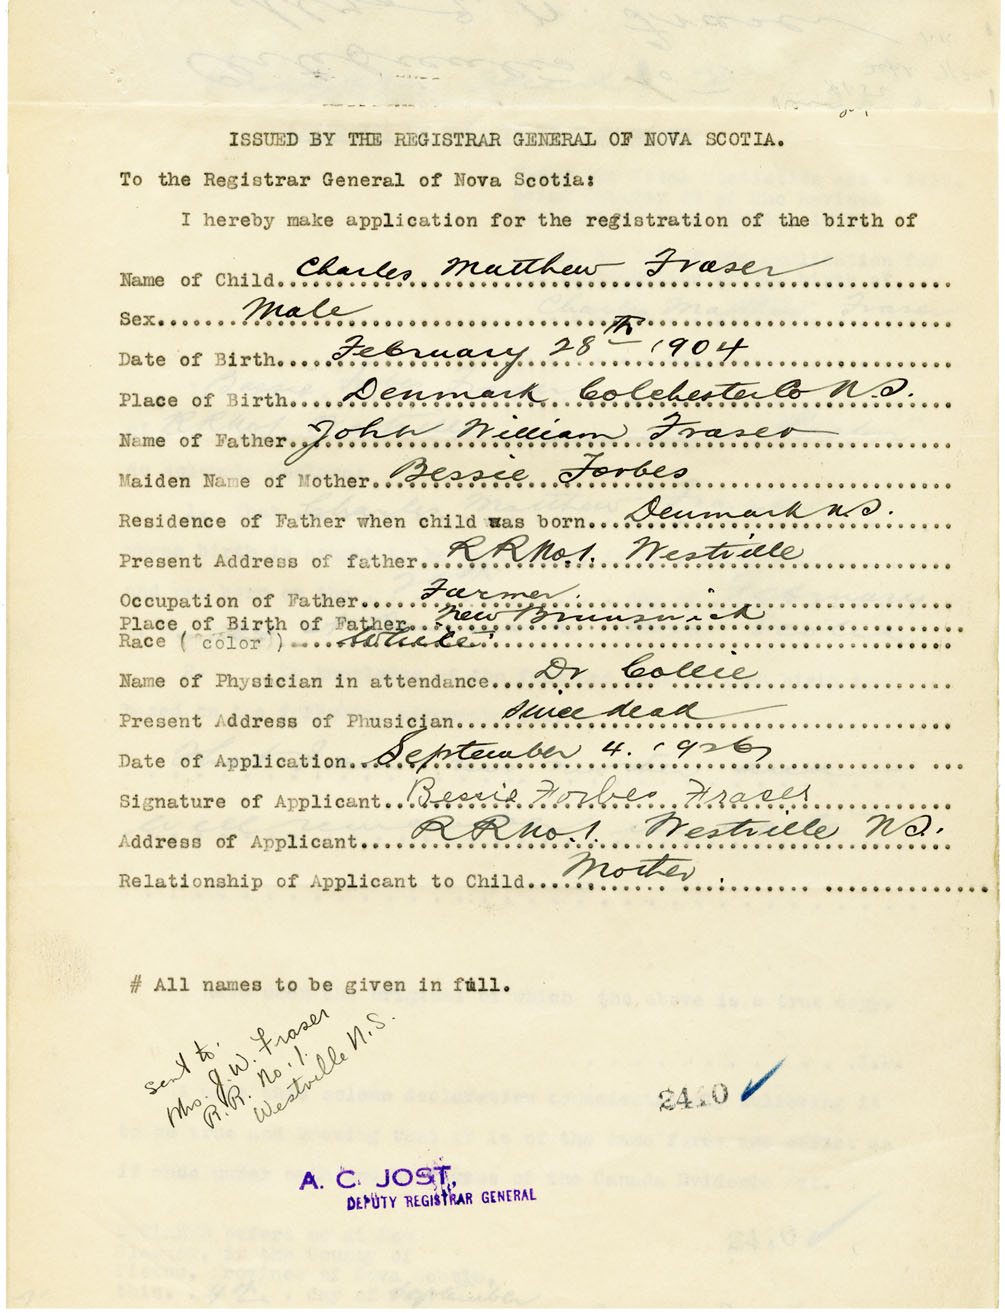 ISSUED BY THE REGISTRAR GENERAL OF NOVA SCOTIA.
To the Registrar General of Nova Scotia:
I hereby make application for the registration of the birth of
Name of Child Charles Matthew Fraser
Sex Male
Date of Birth February 28th 1904
Place of Birth Denmark Colchester Co N.S.
Name of Father John William Fraser
Maiden Name of Mother Bessie Forbes
Residence of Father when child was born Denmark N.S.
Present Address of father R R No. 1. Westville
Occupation of Father Farmer.
Place of Birth of Father New Brunswick
Race ("color") White
Name of Physician in attendance Dr Collie
Present Address of Phusician since dead
Date of Application September 4. 1926
Signature of Applicant Bessie Forbes Fraser
Address of Applicant R R No. 1. Westville N.S.
Relationship of Applicant to Child Mother
# All names to be given in full.
sent to.
Mrs. J. W. Fraser
R.R. No. 1.
Westville N.S.
2410
A. C. JOST,
DEPUTY REGISTRAR GENERAL